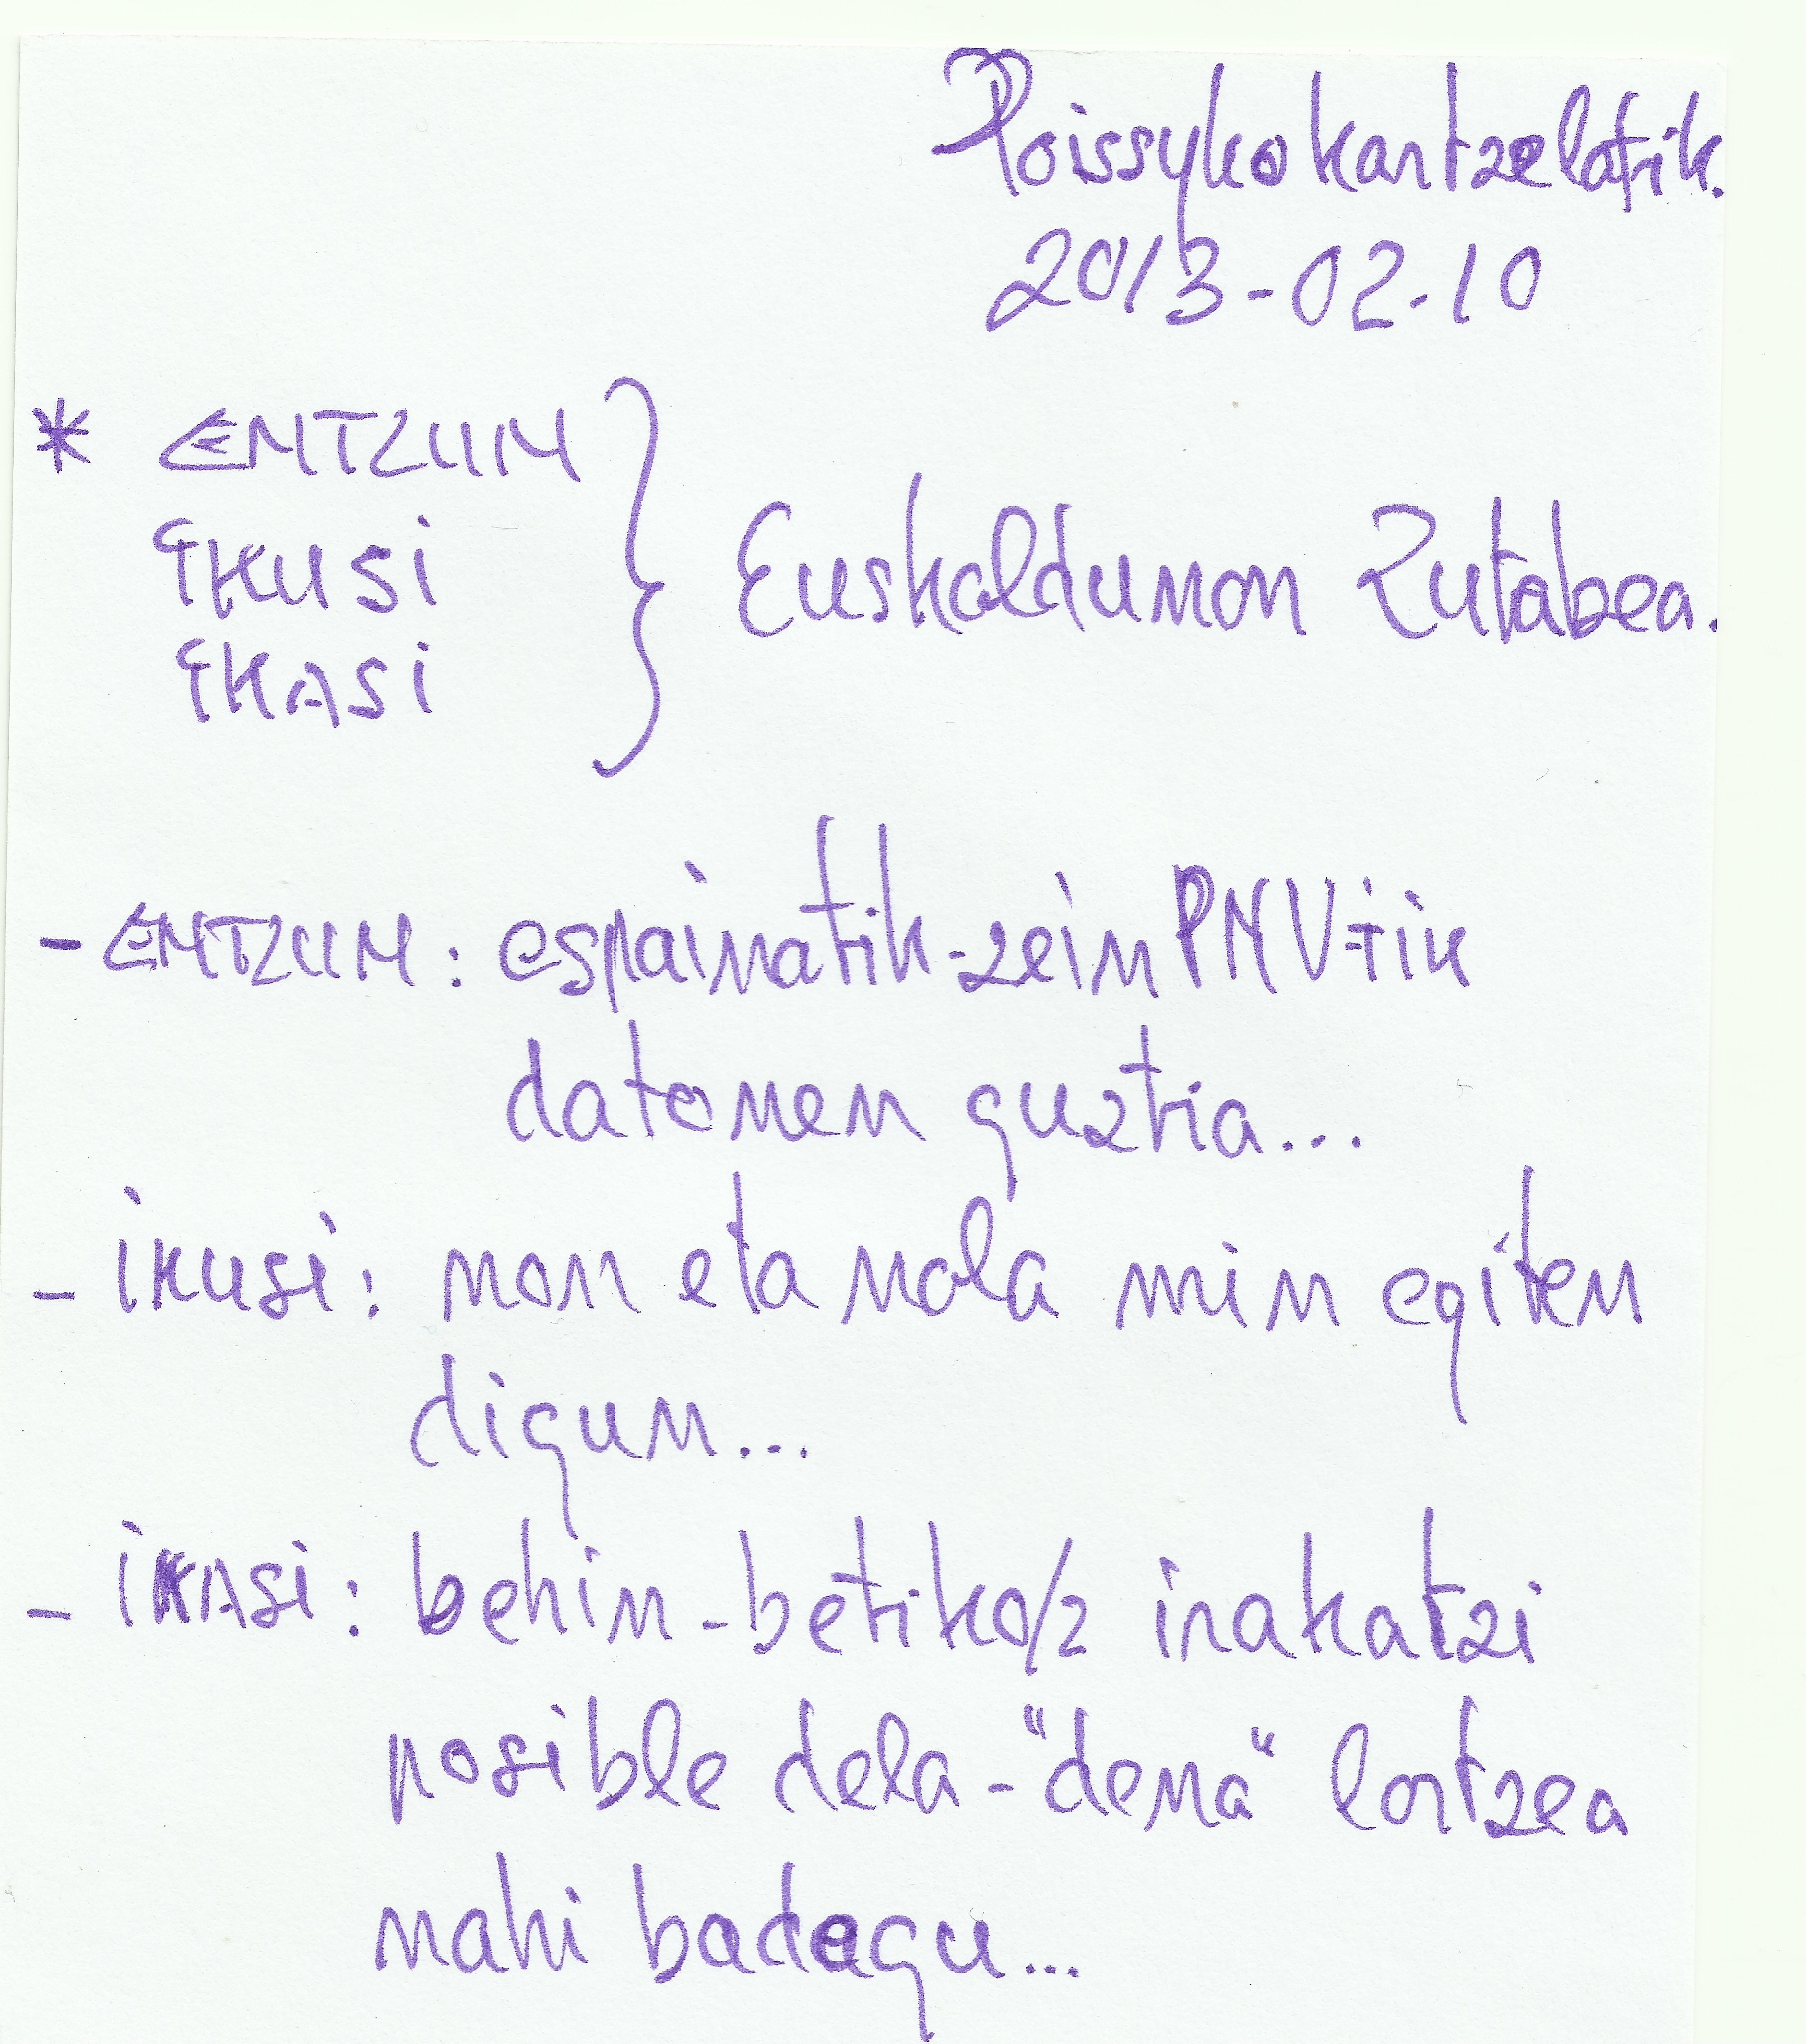 Poissyko kartzelatik.
2013-02-10
* ENTZUN
IKUSI } Euskaldunon Zutabea.
IKASI
- ENTZUN: espainatik-zein PNV-tik
datonen guztia...
- IKUSI: non eta nola min egiten
digun...
- IKASI: behin-betiko/z irakatzi
posible dela-"dena" lortzea
nahi badegu...